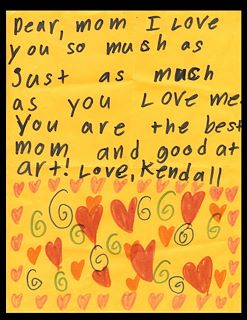 Dear, mom I Love
you so much as
Just as much
as you Love me.
You are the best
mom and good at
art! Love, Kendall